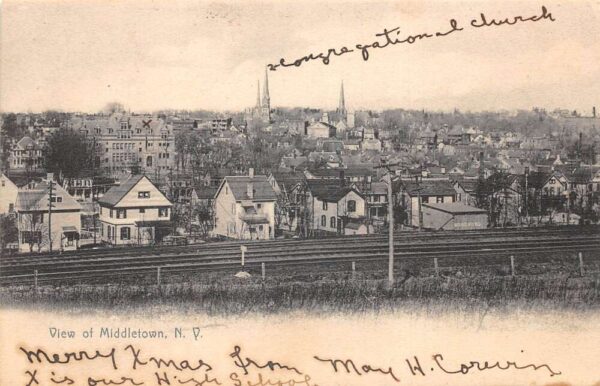 Congregational church
View of Middletown, N. Y.
Merry Xmas from May H. Corwin
X is our High School